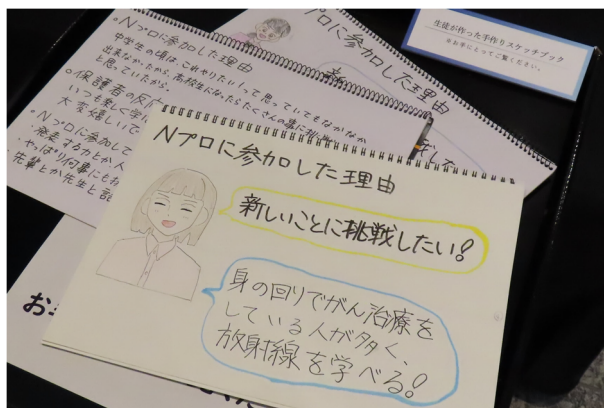 生徒が作った手作りスケッチブック
※お手にとってご覧ください。
プロに参加した理由
Nプロに参加した理由
中学生の頃は、これやりたい!って思っていてもなかなか
出来なかったから、高校生になったらたくさんの事に挑
と思っていたから。
○保護者の反
いつも楽しく学
大変嬉しいで
Nプロに参加して
発表する力とか人
やっぱり何事にも
先輩とか先生と
Nプロに参加した理由
新しいことに挑戦したい!
身の回りでがん治療を
している人が多く、
放射線を学べる!
お